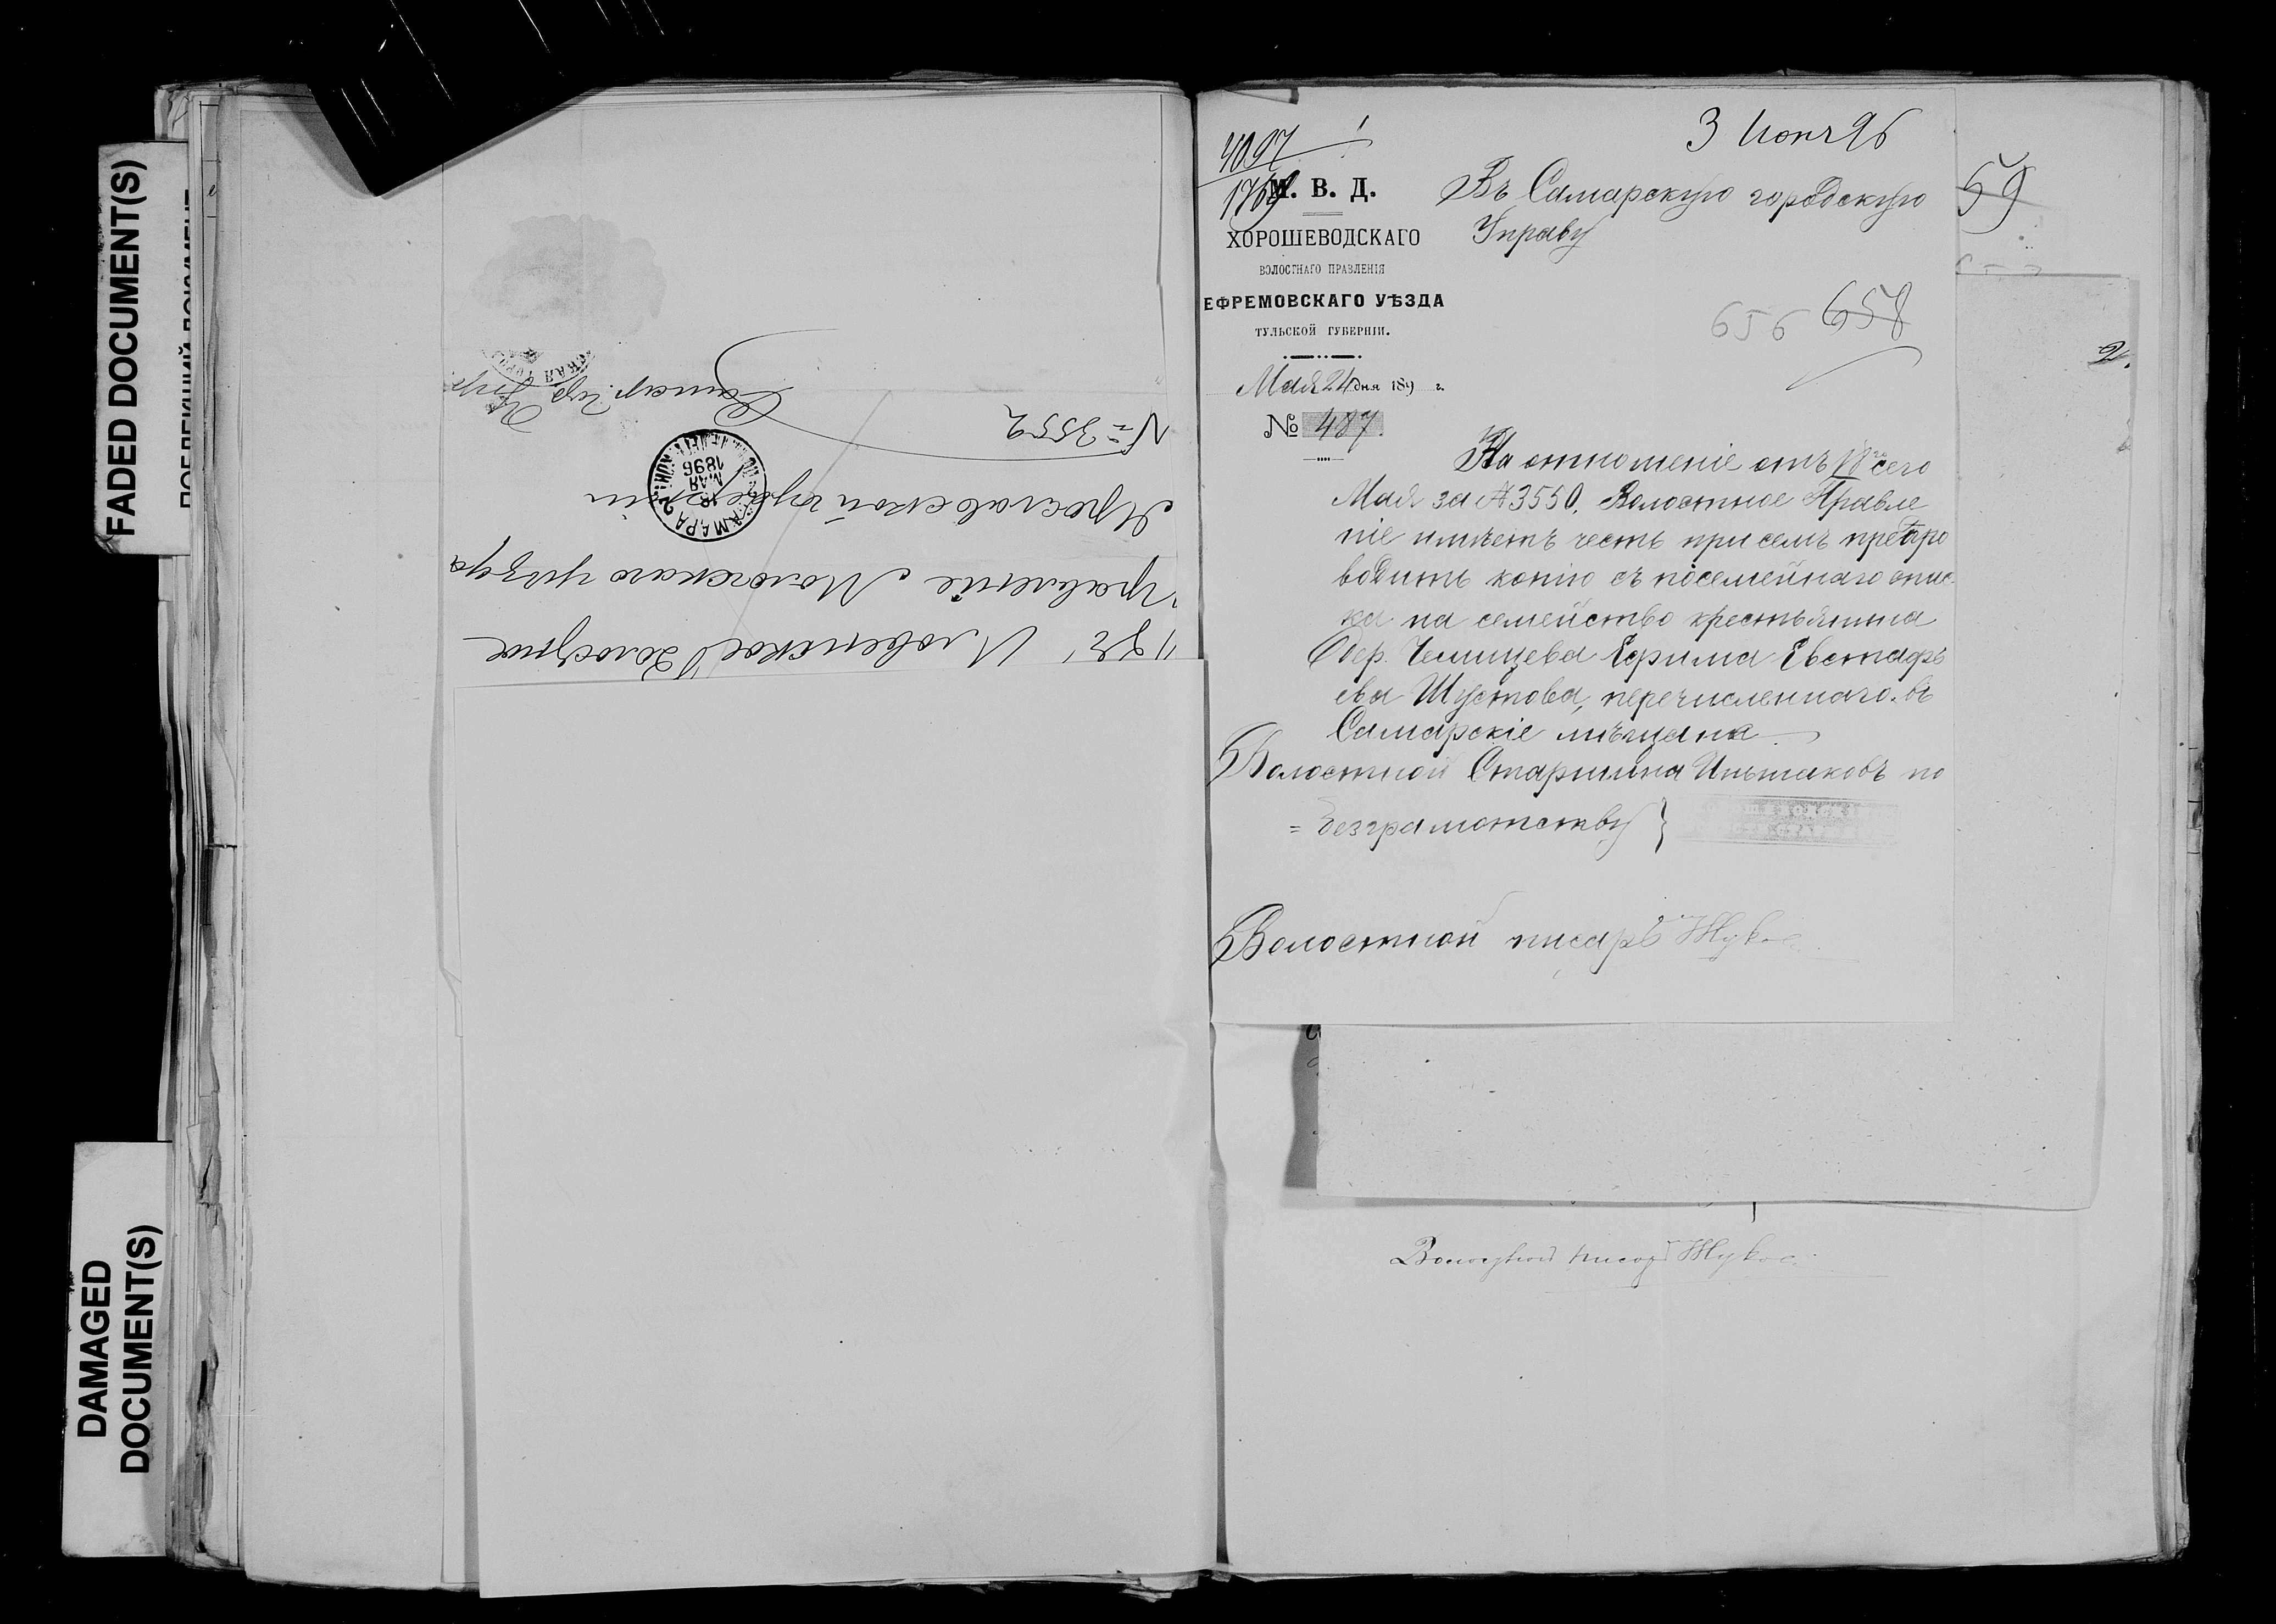 FADED DOCUMENT(S)
DAMAGED
DOCUMENT(S)
Въ Иловенское Волостное
Правленіе Мологскаго уѣзда
Ярославской губерніи
САМАРА
18
МАЯ
1896
№ 3552
Самар. Гор. Упр.
3 Іюня 96
4097
1769
М. В. Д.
ХОРОШЕВОДСКАГО
ВОЛОСТНАГО ПРАВЛЕНІЯ
ЕФРЕМОВСКАГО УѢЗДА
ТУЛЬСКОЙ ГУБЕРНІИ.
Мая 24 дня 189 г.
№ 487.
Въ Самарскую городскую
Управу
59
656 658
На отношеніе отъ 18го сего
Мая за № 3550. Волостное Правле
ніе имѣетъ честь при семъ препро
водить копію съ посемейнаго спис
ка на семейство крестьянина
Дер. Чемищева Ефима Евстафь
ева Шустова, перечисленнаго въ
Самарскіе мѣщана
Волостной Старшина Иньшаковъ по
= безграмотству }
Волостной писарь Жуков
Волостной писарь Жуков